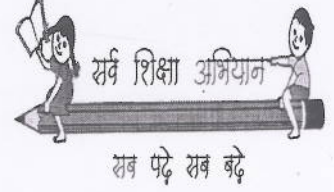 सर्व शिक्षा अभियान
सब पढ़े सब बढ़े